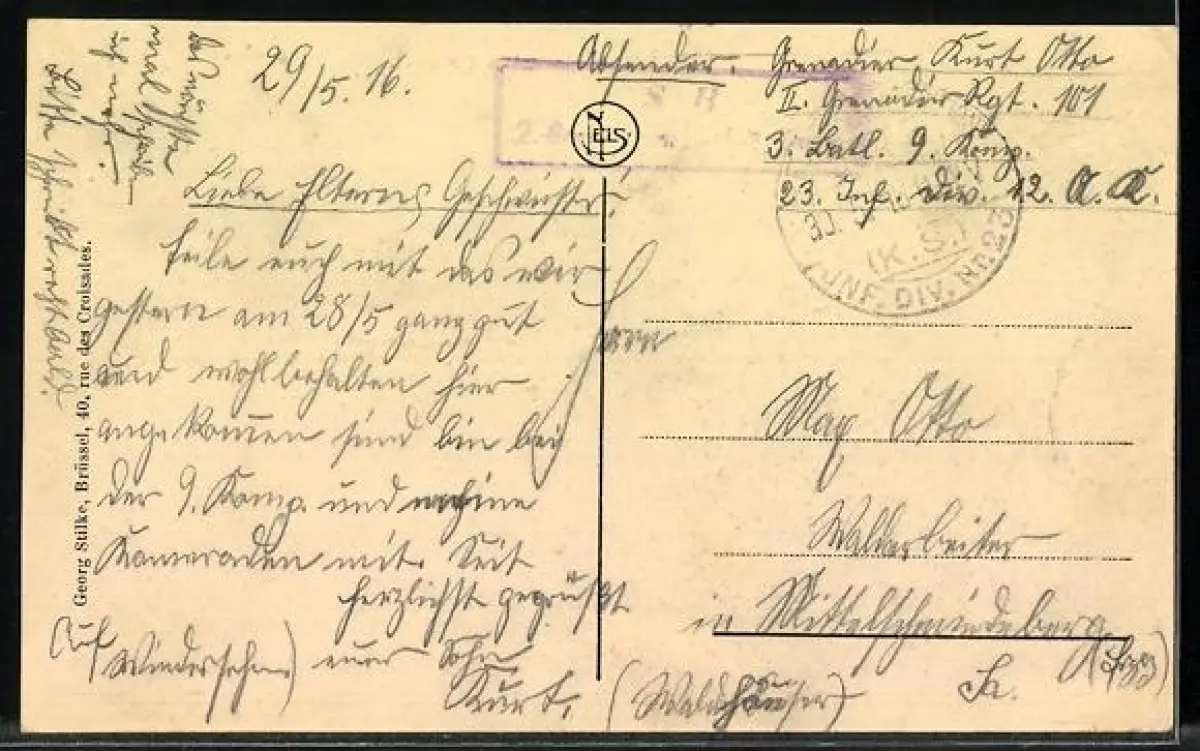 29/5.16.
Liebe Eltern, Geschwister!
Teile euch mit das wir
gestern am 28/5 ganz gut
und wohlbehalten hier
angekommen sind bin bei
der 9. Komp. und meine
Kameraden mit. Seit
herzlichst gegrüßt
(Auf
Wiedersehen) euer Sohn
Kurt.
das nächste
mal schreiben
ich mehr.
Bitte schreibt recht bald.
Georg Stilke, Brüssel, 40, rue des Croisades.
NELS
Absender. Grenadier Kurt Otto
II. Grenadier Rgt. 101
3. Batl. 9. Komp.
23. Inf. Div. 12. A. K.
S B
2.
30.
(K.S.)
INF. DIV. Nr. 23
Herrn
Max Otto
Waldarbeiter
in Mittelschmiedeberg
(Erzg)
(Waldhäuser) Sa.